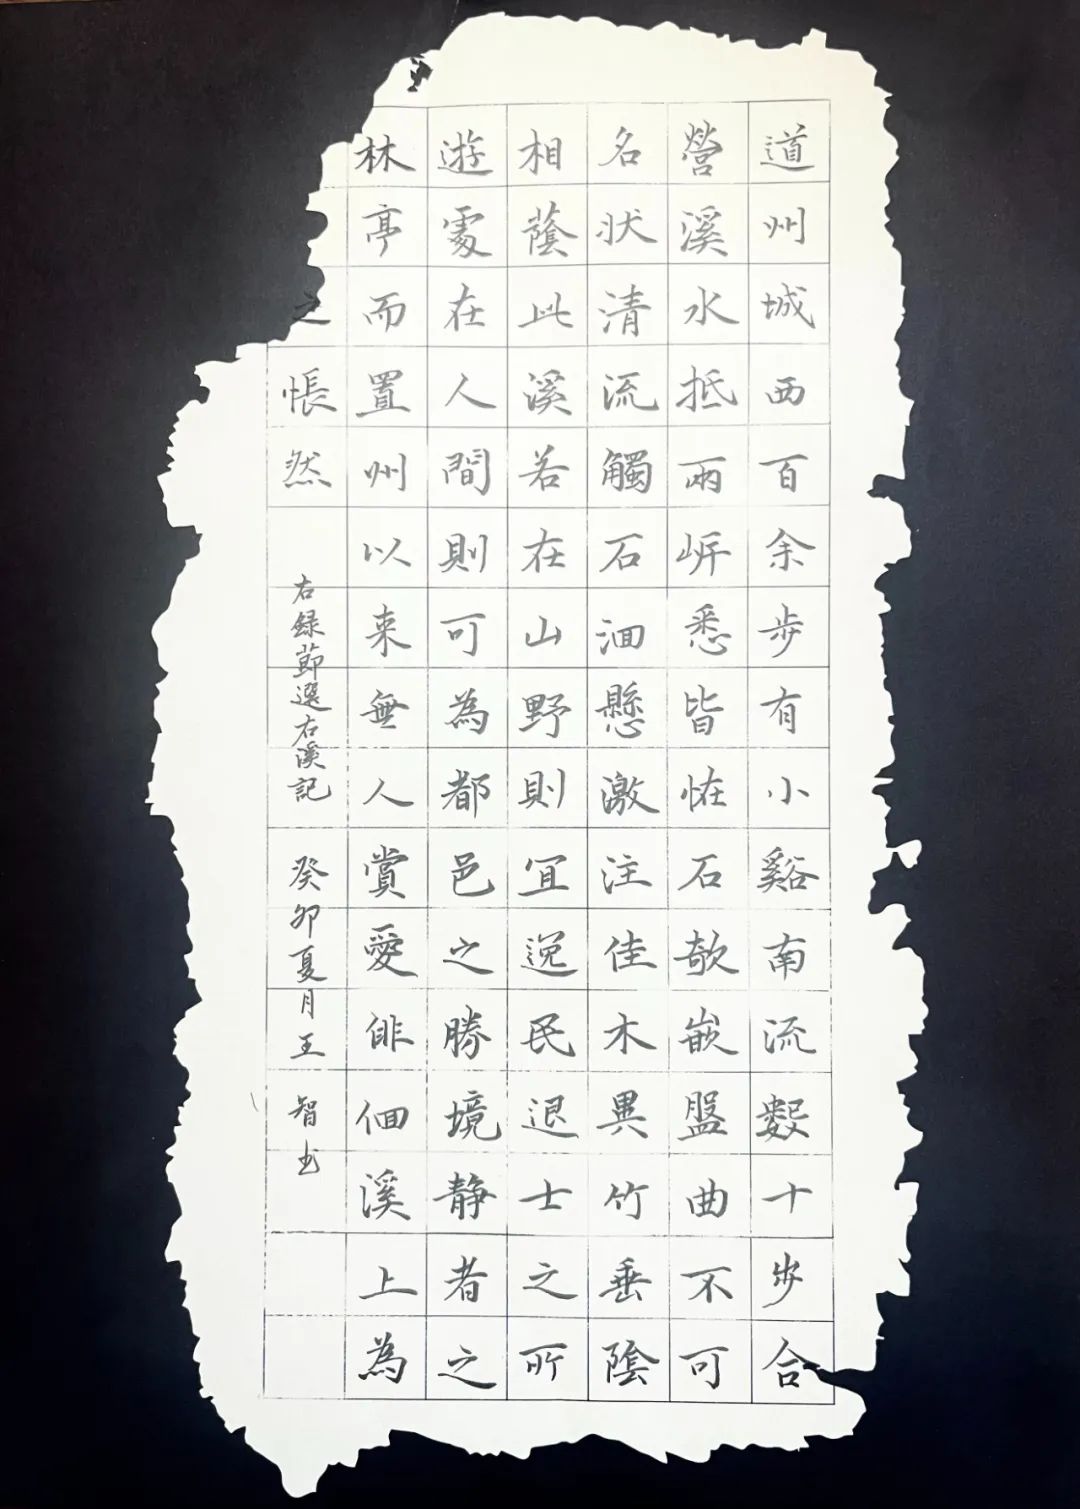 道州城西百余步有小谿南流數十步合
營溪水抵兩岸悉皆怪石欹嵌盤曲不可
名狀清流觸石洄懸激注佳木異竹垂陰
相蔭此溪若在山野則宜逸民退士之所
遊處在人間則可為都邑之勝境靜者之
林亭而置州以来無人賞愛徘徊溪上為
之悵然
右録節選右溪記
癸卯夏月王智书